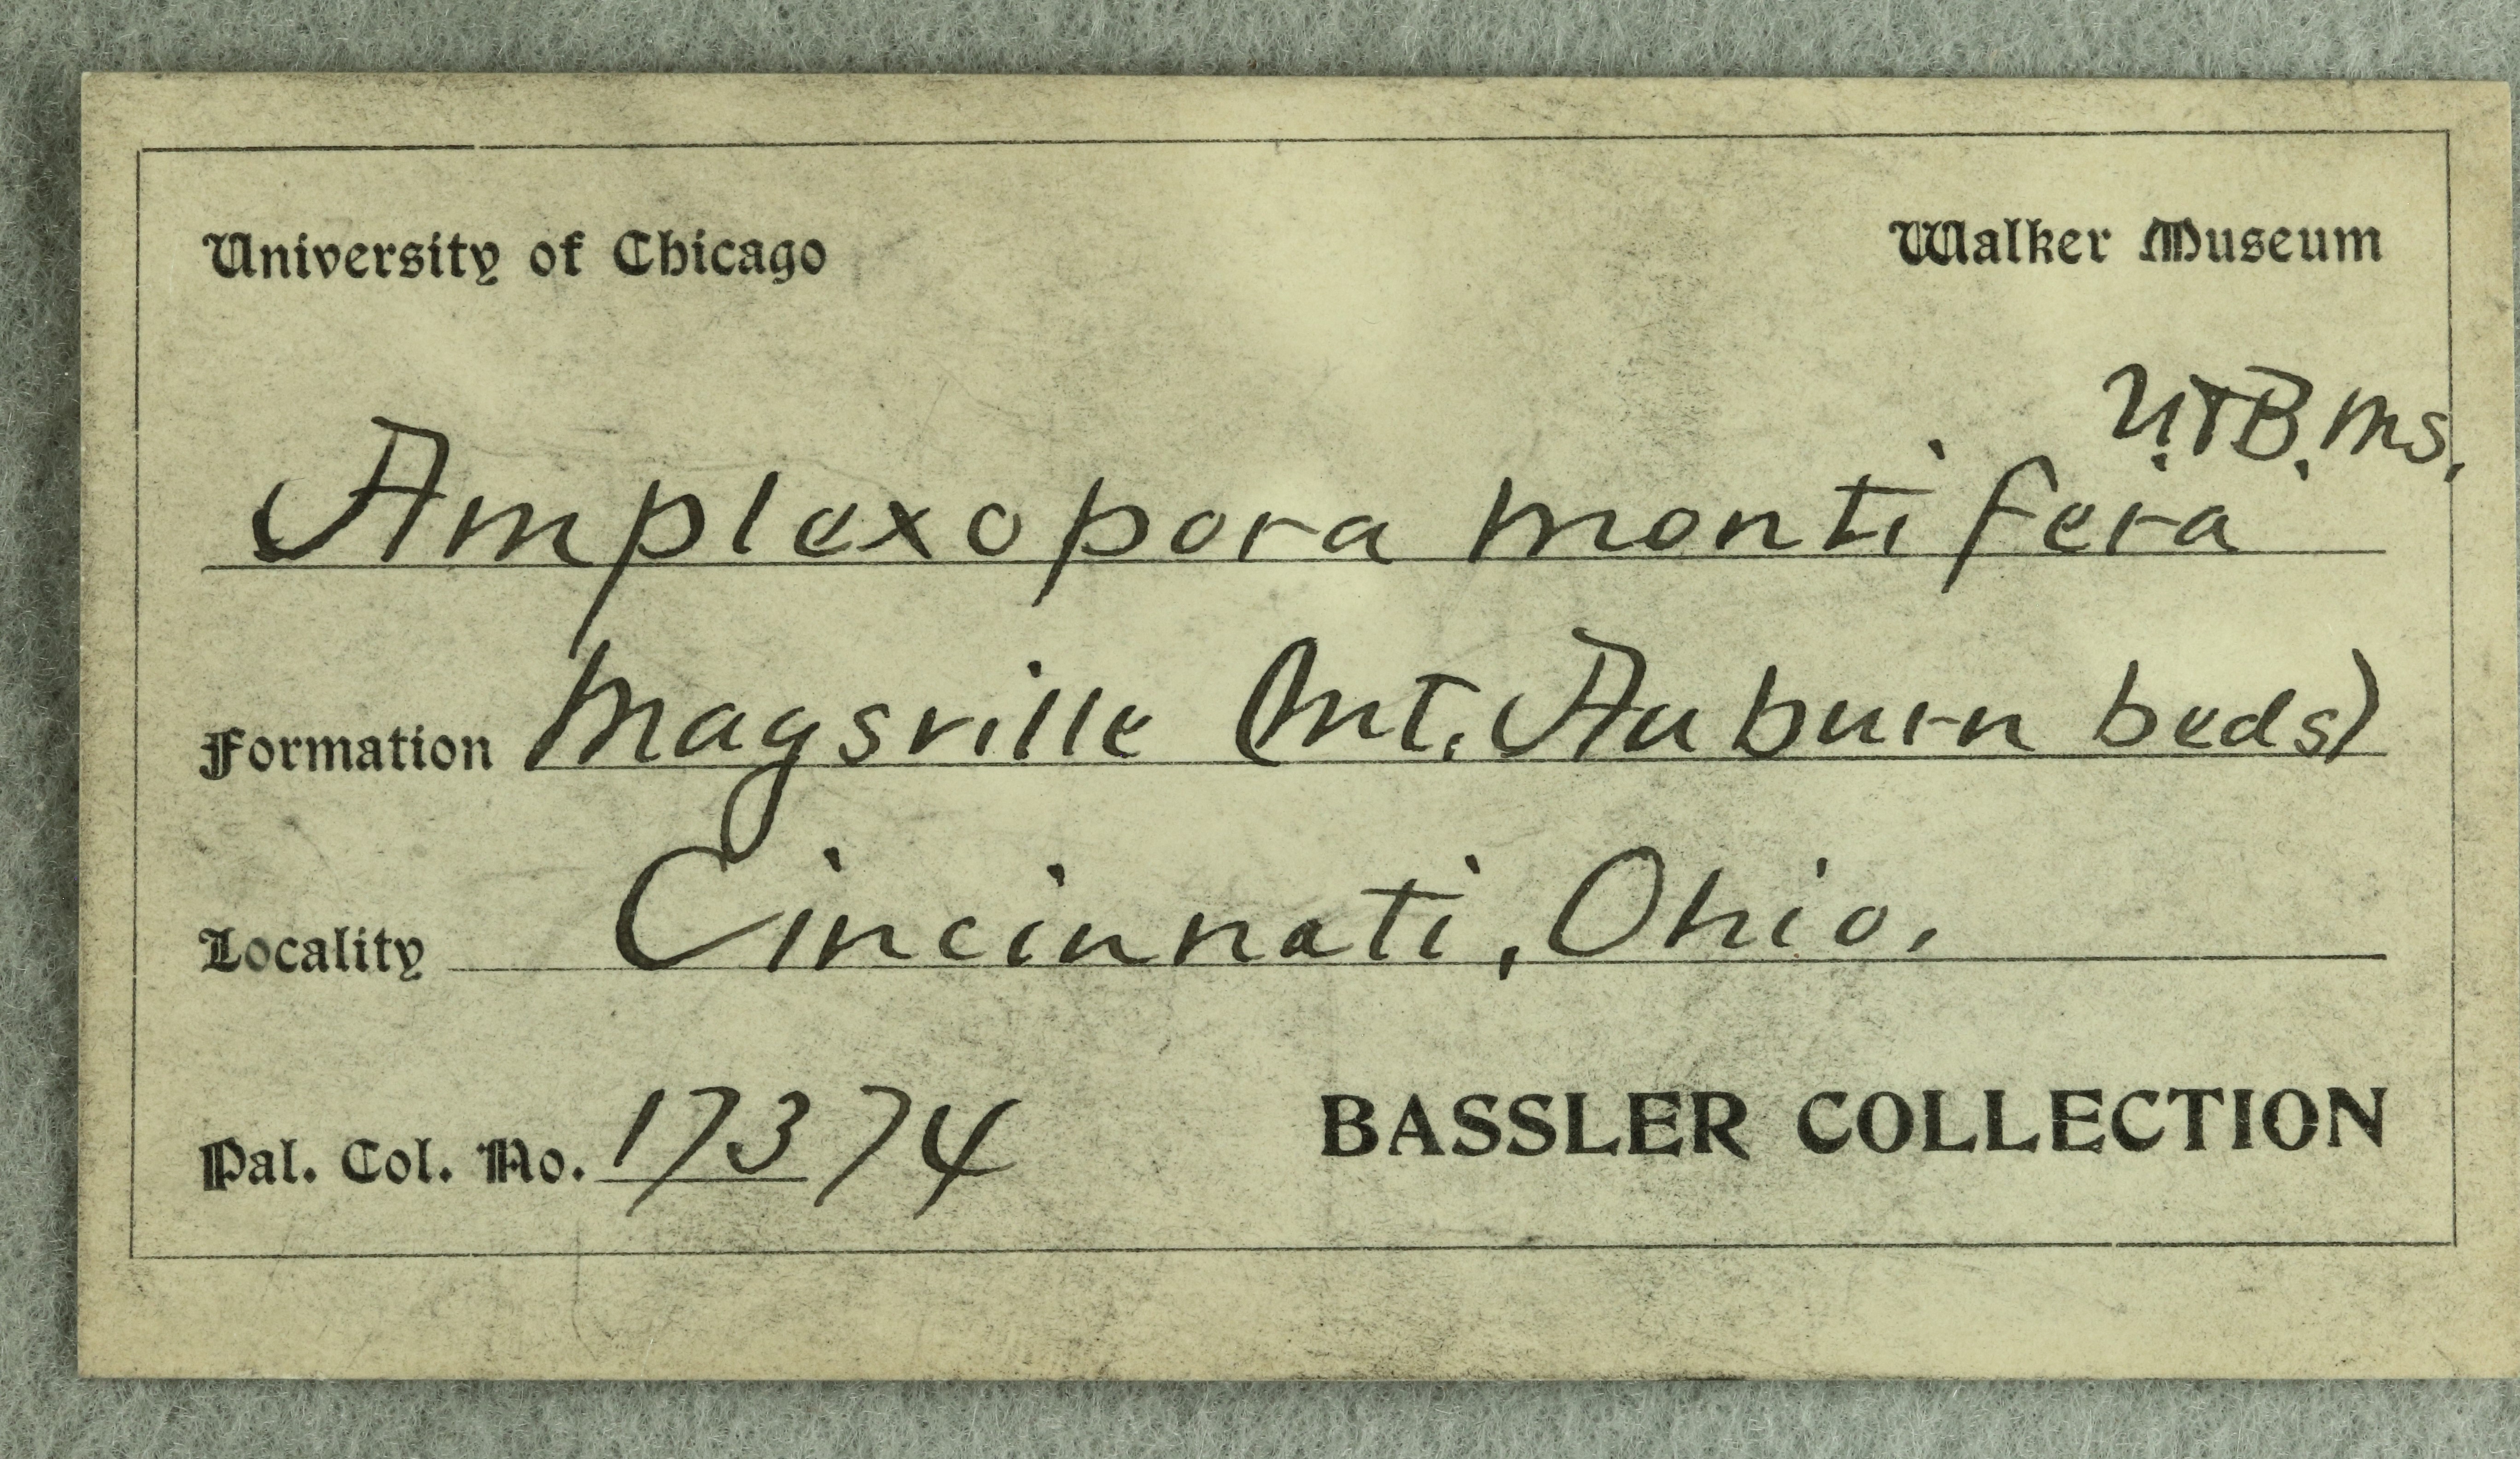 University of Chicago Walker Museum
U.+B. ms.
Amplexopora montifera
Formation Maysville (Mt. Auburn beds)
Locality Cincinnati, Ohio.
Pal. Col. No. 17374 BASSLER COLLECTION